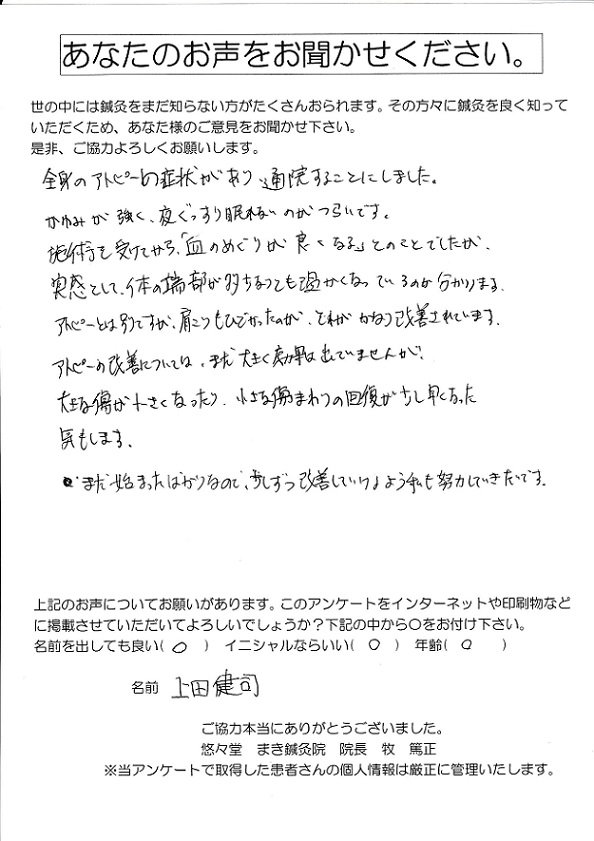 あなたのお声をお聞かせください。
世の中には鍼灸をまだ知らない方がたくさんおられます。その方々に鍼灸を良く知って
いただくため、あなた様のご意見をお聞かせ下さい。
是非、ご協力よろしくお願いします。
全身のアトピーの症状があり通院することにしました。
かゆみが強く、夜ぐっすり眠れないのがつらいです。
施術を受けてから、「血のめぐりが良くなる」とのことでしたが、
実感として、体の端部が多少なっても温かくなっているのが分かります。
アトピーとは別ですが、肩こりもひどかったのが、それがかなり改善されています。
アトピーの改善については、まだ大きく効果は出ていませんが、
大きな傷が小さくなったり、小さな傷まわりの回復が少し早くなった
気もします。
まだ始まったばかりなので、少しずつ改善していけるよう私も努力していきたいです。
上記のお声についてお願いがあります。このアンケートをインターネットや印刷物など
に掲載させていただいてよろしいでしょうか?下記の中から〇をお付け下さい。
名前を出しても良い( ○ ) イニシャルならいい( ○ ) 年齢( ○ )
名前 上田健司
ご協力本当にありがとうございました。
悠々堂 まき鍼灸院 院長 牧 篤正
※当アンケートで取得した患者さんの個人情報は厳正に管理いたします。